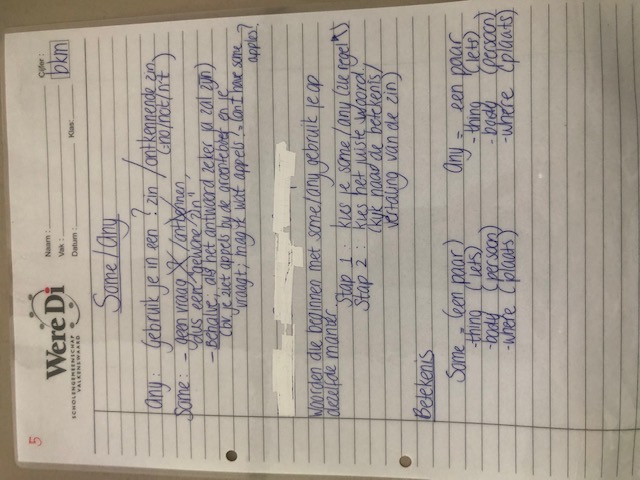 5
Were Di
SCHOLENGEMEENSCHAP
VALKENSWAARD
Naam :
Vak :
Datum :
Klas:
Cijfer :
bkm
Some/Any
any: Gebruik je in een ? zin / ontkennende zin
(no/not/n't)
Some: - geen vraag X / ontkennen,
dus een "gewone zin"
- Behalve, als het antwoord zeker ja zal zijn
(bv je ziet appels bij de groenteboer en je
vraagt: mag ik wat appels? → Can I have some
apples?
Woorden die beginnen met some/any gebruik je op
dezelfde manier
Stap 1: kies je some/any (zie regel ↑)
Stap 2: kies het juiste woord
(kijk naar de betekenis/
vertaling van de zin)
Betekenis
Some = (een paar)
-thing (iets)
-body (persoon)
-where (plaats)
any = een paar
-thing (iets)
-body (persoon)
-where (plaats)